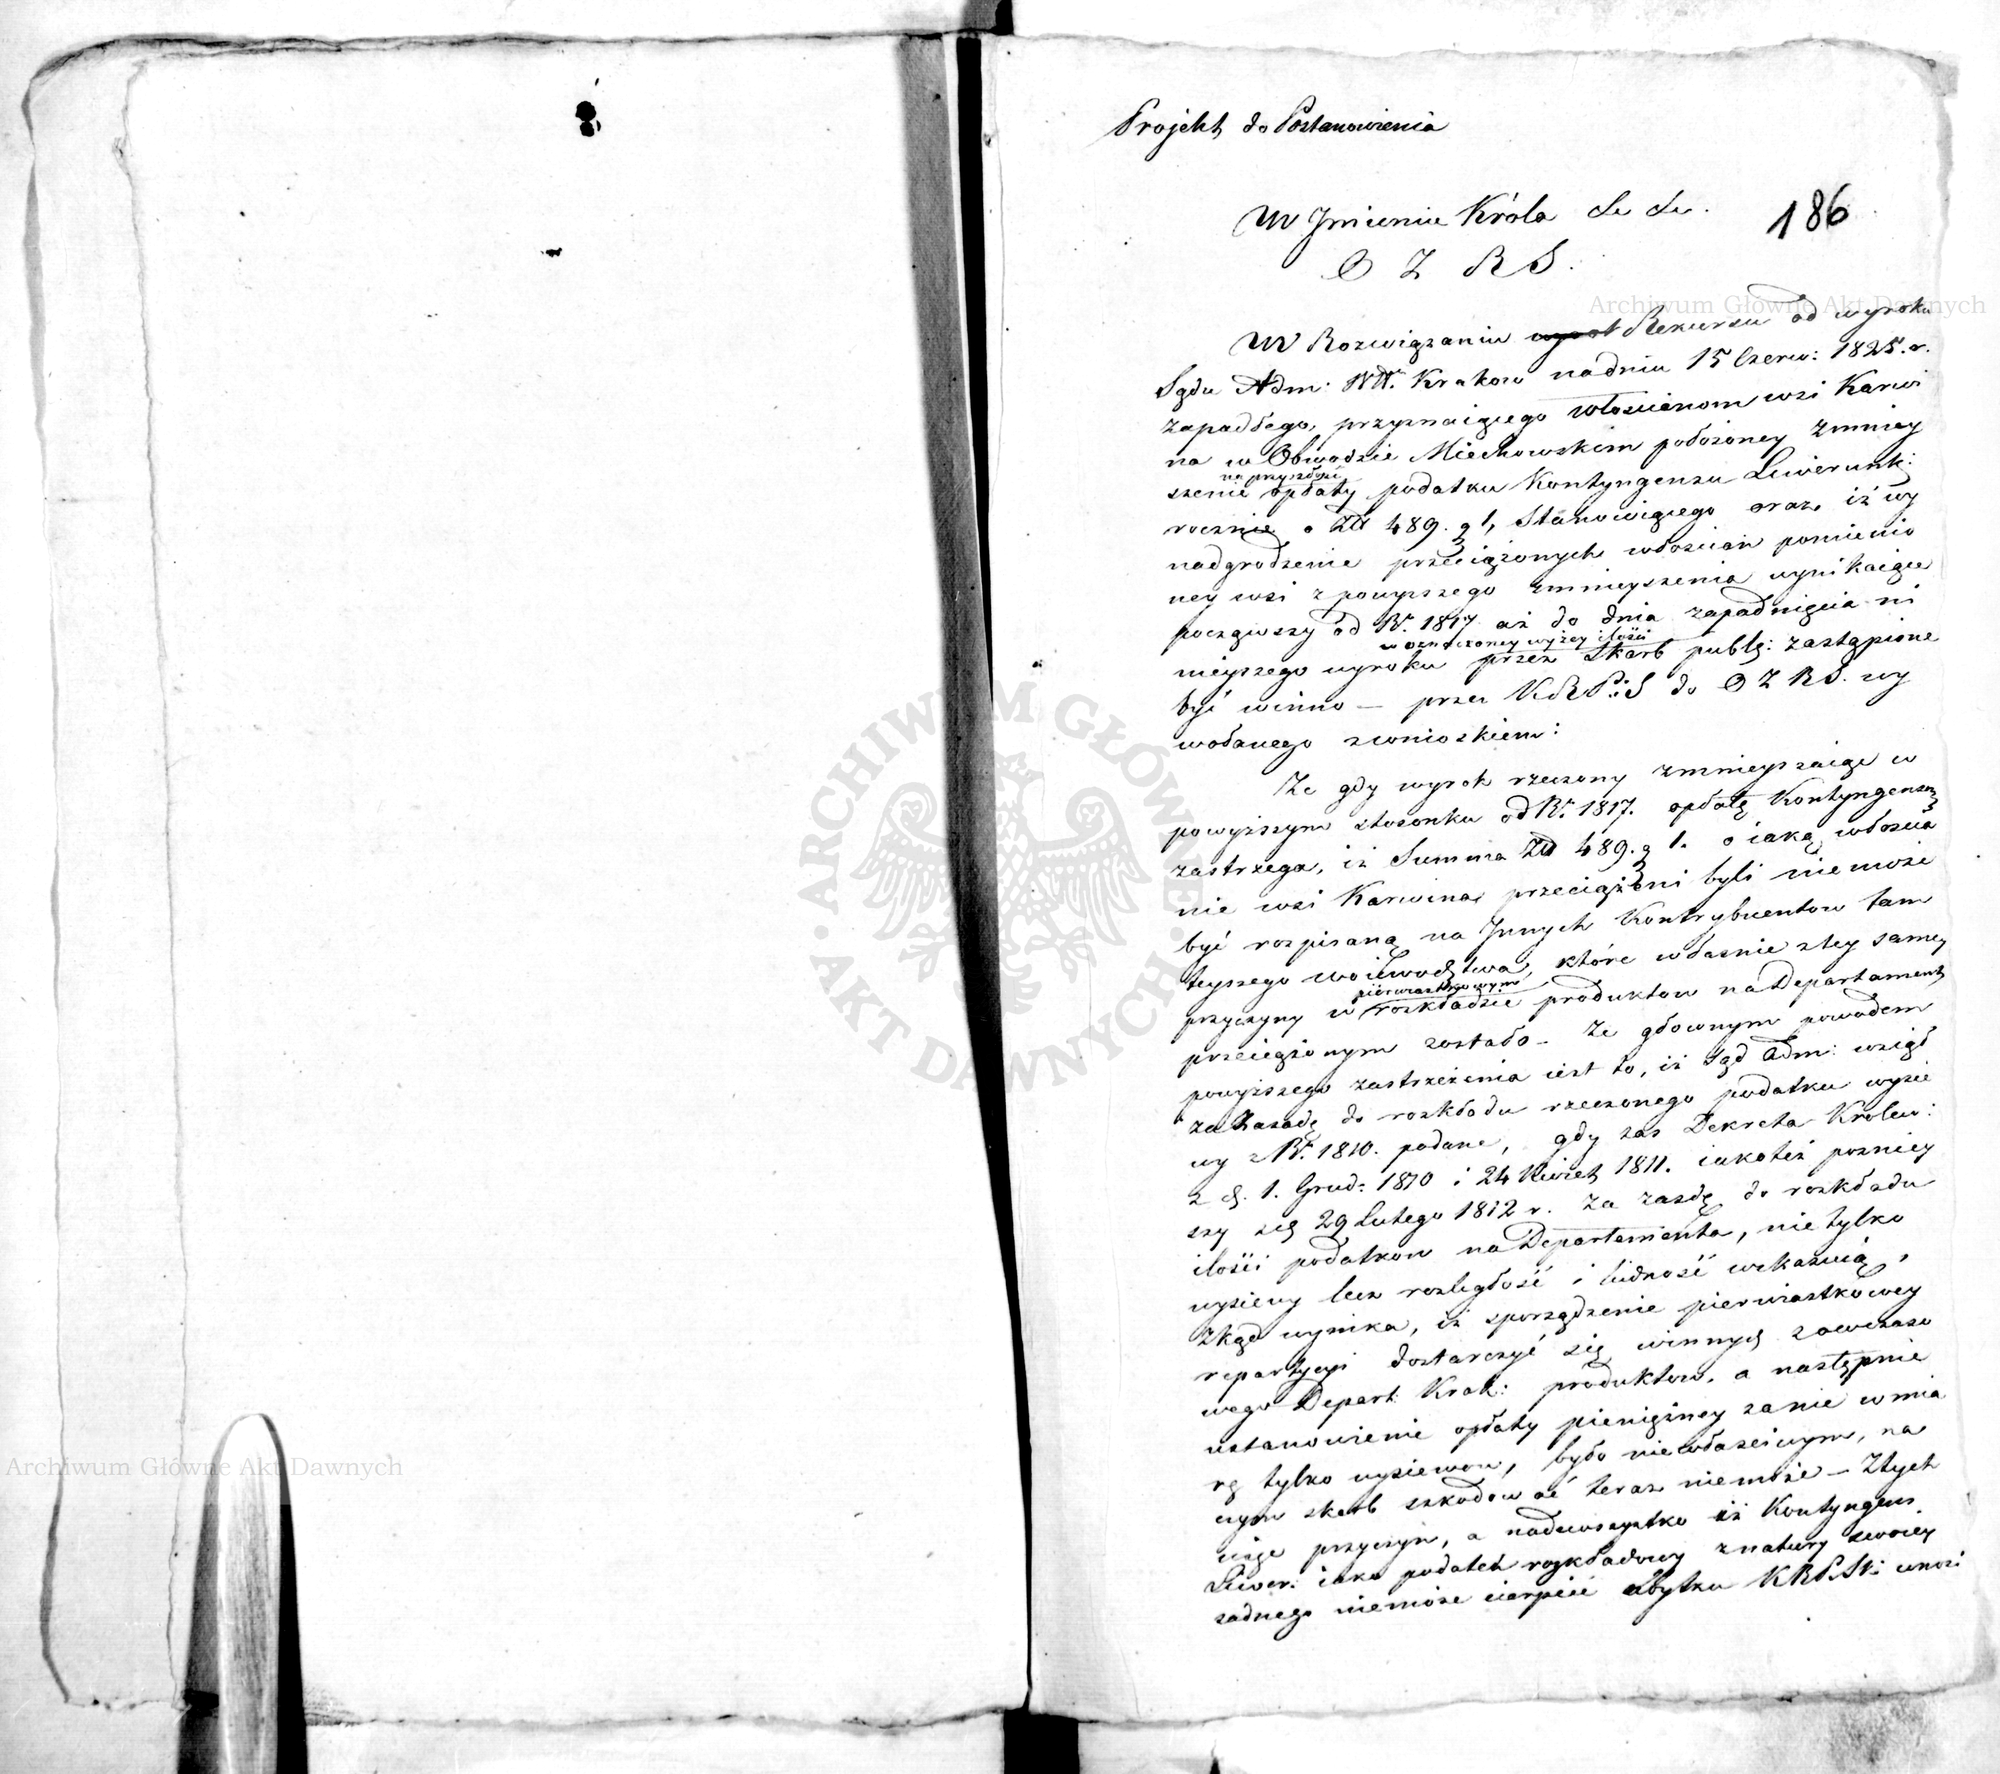 Projekt do Postanowienia
W Jmieniu Króla &c &c.
186
O Z R S.
W Rozwiązaniu Rekursu od wyroku
Sądu Adm: Wtt. Krakow na dniu 15 Czerw: 1825. r.
zapadłego, przyznaiącego włościanom wsi Karwi
na w Obwodzie Miechowskim położoney zmniey
na przyszłość
szenie opłaty podatku Kontyngensu Liwerunk:
rocznie o Zł 489. g 1, Stanowiącego oraz, iż wy
nadgrodzenie przeciążonych włościan pomienio
ney wsi z powyższego zmnieyszenia wynikaiące
począwszy od Rr. 1817 aż do dnia zapadnięcia ni
w oznaczoney wyżey ilości
nieyszego wyroku przez Skarb publ: zastąpione
być winno — przez KRP:S do O Z R S. wy
wołanego z wnioskiem:
Że gdy wyrok rzeczony zmnieyszaiąc w
powyższym stosonku od Rr. 1817. opłatę Kontyngensu
zastrzega, iż Summa Zł 489. g 1. o iaką włościa
nie wsi Karwina, przeciążeni byli nie może
być rozpisaną na Jnnych Kontrybuentow tam
teyszego woiewodztwa, które własnie z tey samey
pierwiastkowym
przyczyny w rozkładzie produktow na Departament
przeciążonym zostało — Że głownym powodem
powyższego zastrzeżenia iest to, iż Sąd Adm: wziął
za Zasadę do rozkładu rzeczonego podatku wysie
wy z Rr. 1810. podane, gdy zas Dekreta Krolew:
z d. 1. Grud: 1810 i 24 Kwiet 1811. iakoteż poźniey
szy z d 29 Lutego 1812 r. za zasdę do rozkładu
ilości podatkow na Departamenta, nie tylko
wysiewy lecz rozległość i ludność wskazuią,
Zkąd wynika, iż sporządzenie pierwiastkowey
repartycyi dostarczyć się winnych zowczaso
wego Depart. Krak: produktow, a następnie
ustanowienie opłaty pieniężney za nie w mia
rę tylko wysiewow, było niewłaściwym, na
czym skarb szkodować teraz niemoże — Z tych
więc przyczyn, a nadewszystko iż Kontyngens
Liwer: iako podatek rozkładowy z natury swoiey
żadnego niemoże cierpieć ubytku KRPiSk: wnosi
Archiwum Główne Akt Dawnych
Archiwum Główne Akt Dawnych
ARCHIWUM GŁÓWNE AKT DAWNYCH